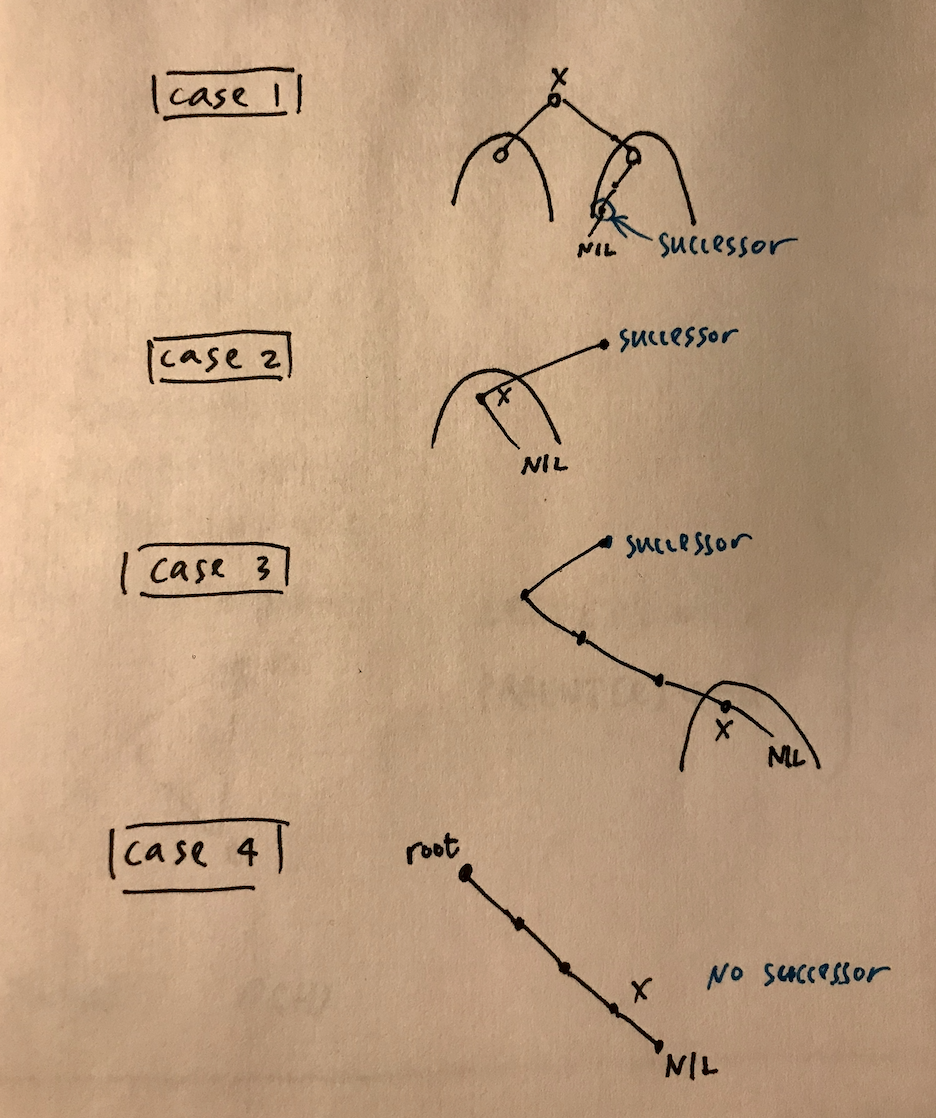 case 1
X
NIL
successor
case 2
successor
X
NIL
case 3
successor
X
NIL
case 4
root
X
No successor
NIL